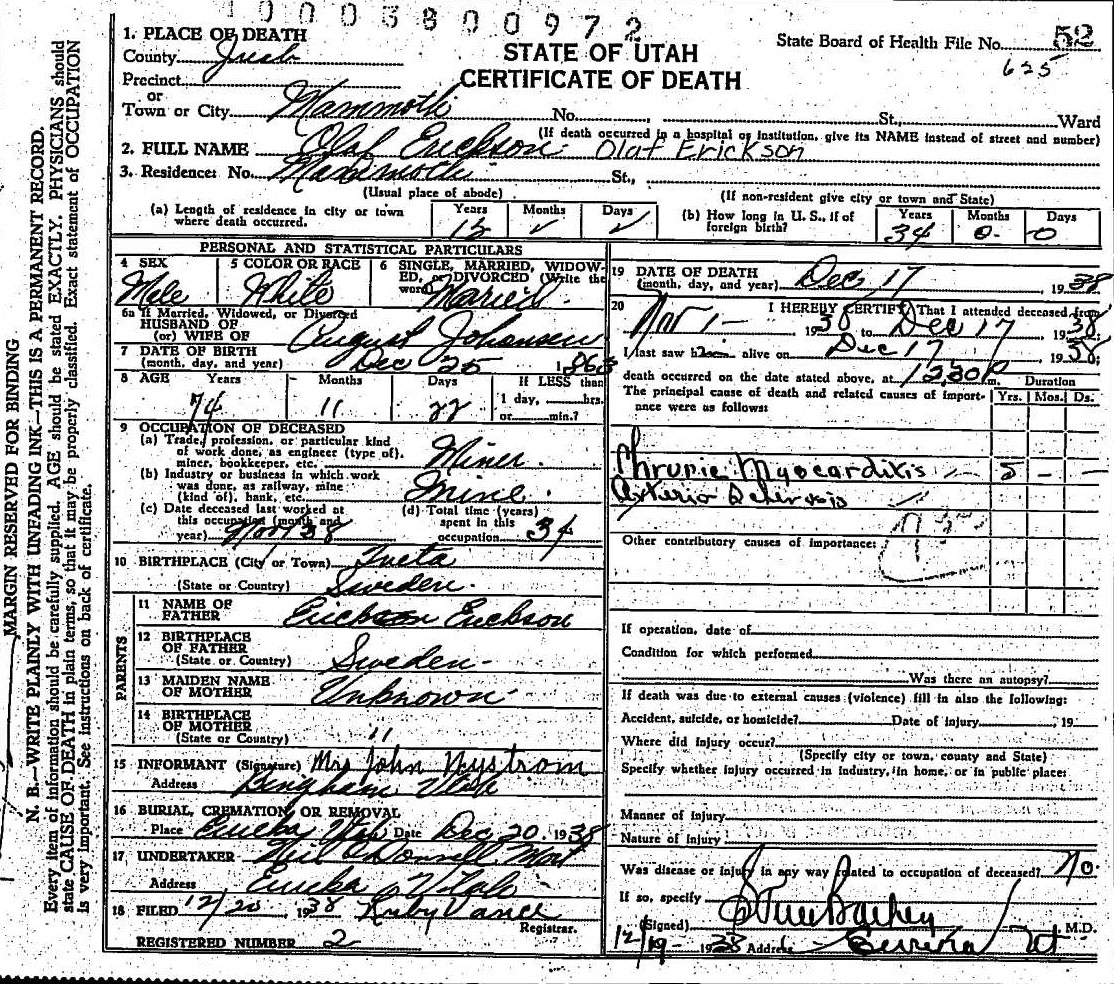 10003800972
1. PLACE OF DEATH
County Juab
STATE OF UTAH
CERTIFICATE OF DEATH
State Board of Health File No. 52
625
Precinct
or
Town or City Mammoth No. St., Ward
(If death occurred in a hospital or institution, give its NAME instead of street and number)
2. FULL NAME Olaf Erickson Olaf Erickson
3. Residence: No. Mammoth St.,
(Usual place of abode) (If non-resident give city or town and State)
(a) Length of residence in city or town where death occurred. Years 12 Months ✓ Days ✓
(b) How long in U. S., if of foreign birth? Years 34 Months 0 Days 0
PERSONAL AND STATISTICAL PARTICULARS
4 SEX Male
5 COLOR OR RACE White
6 SINGLE, MARRIED, WIDOWED, or DIVORCED (Write the word) Married
6a If Married, Widowed, or Divorced
HUSBAND OF
(or) WIFE OF August Johansen
7 DATE OF BIRTH
(month, day, and year) Dec 25 1863
8 AGE Years 74 Months 11 Days 22 If LESS than
1 day, hrs.
or min.?
9 OCCUPATION OF DECEASED
(a) Trade, profession, or particular kind
of work done, as engineer (type of),
miner, bookkeeper, etc. Miner
(b) Industry or business in which work
was done, as railway, mine
(kind of), bank, etc. Mine
(c) Date deceased last worked at
this occupation (month and
year) Nov 38
(d) Total time (years)
spent in this
occupation 34
10 BIRTHPLACE (City or Town) Tveta
(State or Country) Sweden
PARENTS
11 NAME OF
FATHER Erickson Erickson
12 BIRTHPLACE
OF FATHER
(State or Country) Sweden
13 MAIDEN NAME
OF MOTHER Unknown
14 BIRTHPLACE
OF MOTHER
(State or Country) "
15 INFORMANT (Signature) Mrs John Nystrom
Address Bingham Utah
16 BURIAL, CREMATION, OR REMOVAL
Place Eureka Utah Date Dec 20, 1938
17 UNDERTAKER Neil O'Donnell Mort
Address Eureka Utah
18 FILED 12/20, 1938 Ruby Vance
Registrar.
REGISTERED NUMBER 2
19 DATE OF DEATH
(month, day, and year) Dec 17 1938
20 I HEREBY CERTIFY, That I attended deceased from
Nov 1 - 1938 to Dec 17, 1938
I last saw him alive on Dec 17, 1938
death occurred on the date stated above, at 12,30 P m.
The principal cause of death and related causes of importance were as follows:
Duration
Yrs. Mos. Ds.
Chronic Myocarditis - 5 - -
Arterio Sclerosis
Other contributory causes of importance:
If operation, date of
Condition for which performed
Was there an autopsy?
If death was due to external causes (violence) fill in also the following:
Accident, suicide, or homicide? Date of injury , 19
Where did injury occur?
(Specify city or town, county and State)
Specify whether injury occurred in industry, in home, or in public place:
Manner of injury
Nature of injury
Was disease or injury in any way related to occupation of deceased? No
If so, specify
(Signed) M.D.
12/19- 1938 Address Eureka Ut
MARGIN RESERVED FOR BINDING
N. B.—WRITE PLAINLY WITH UNFADING INK—THIS IS A PERMANENT RECORD.
Every item of information should be carefully supplied. AGE should be stated EXACTLY. PHYSICIANS should
state CAUSE OF DEATH in plain terms, so that it may be properly classified. Exact statement of OCCUPATION
is very important. See instructions on back of certificate.